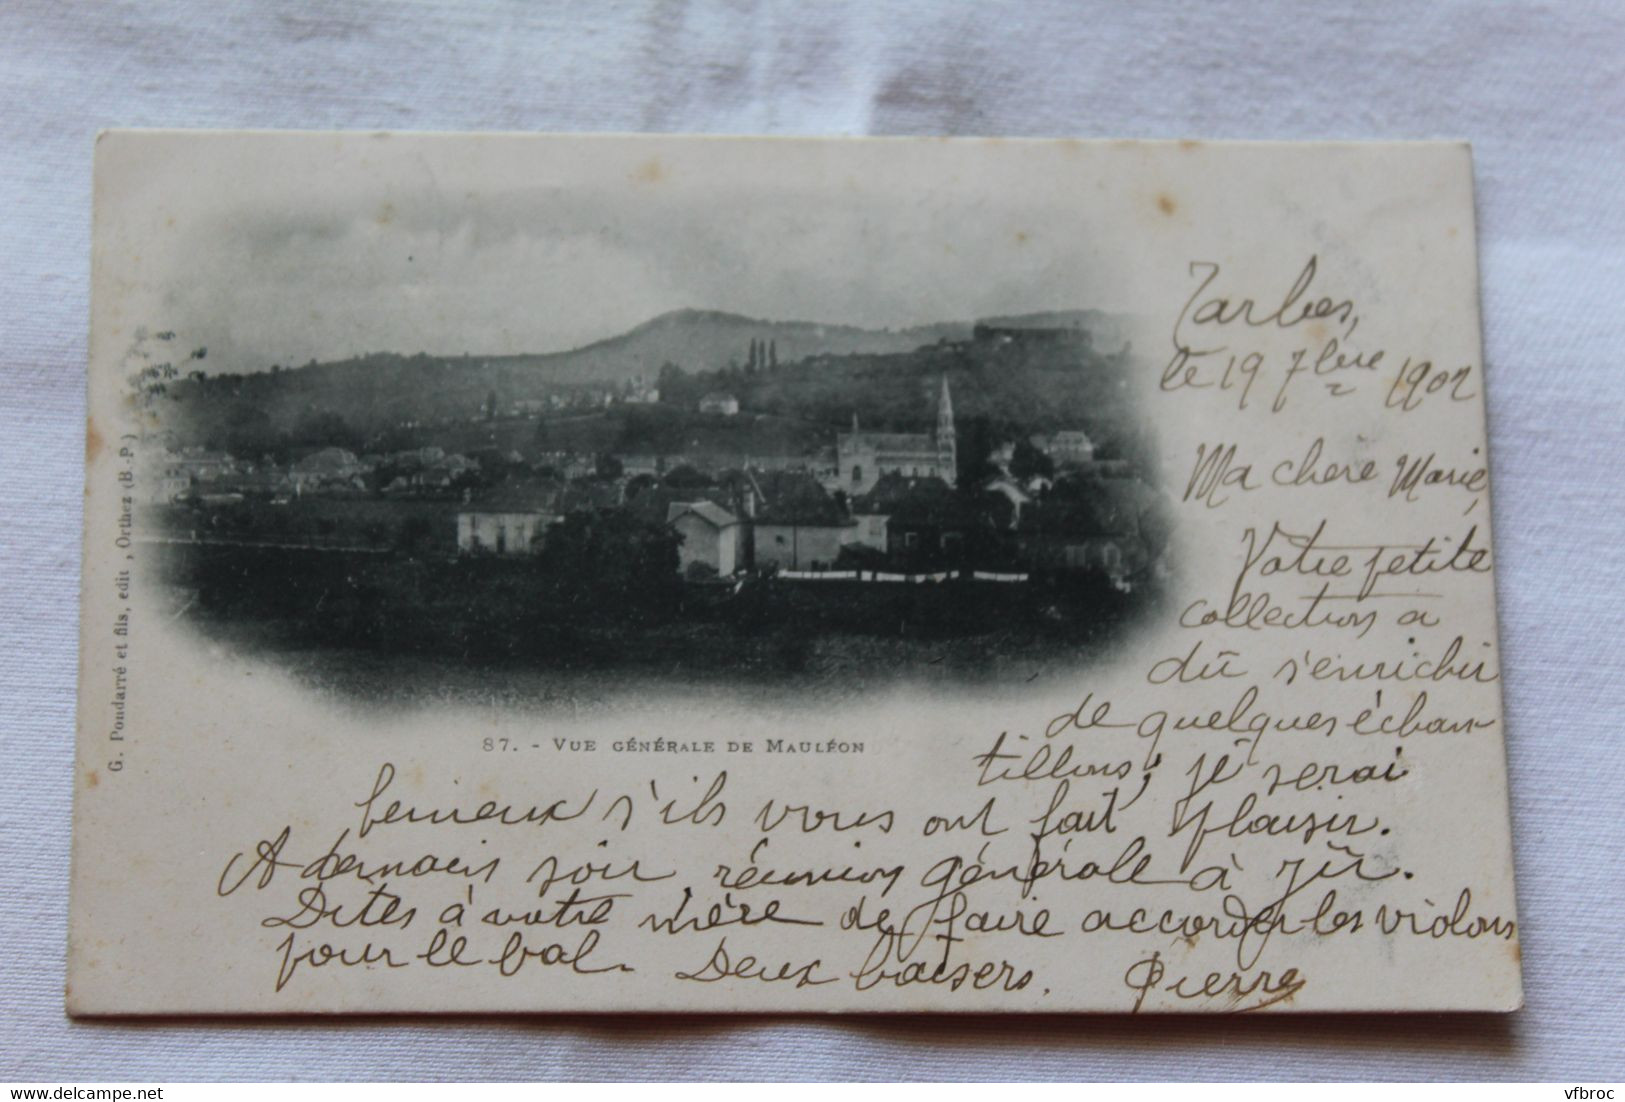 G. Pondarré et fils, edit, Orthez (B.-P.)
87. - VUE GÉNÉRALE DE MAULÉON
Tarbes,
le 19 7bre 1902
Ma chere Marie,
Votre petite
collection a
dû s'enrichir
de quelques échan-
tillons; je serai
heureux s'ils vous ont fait plaisir.
A demain soir réunion générale à
Dites à votre mère de faire accorder les violons
pour le bal. Deux baisers. Pierre
delcampe.net
vfbroc